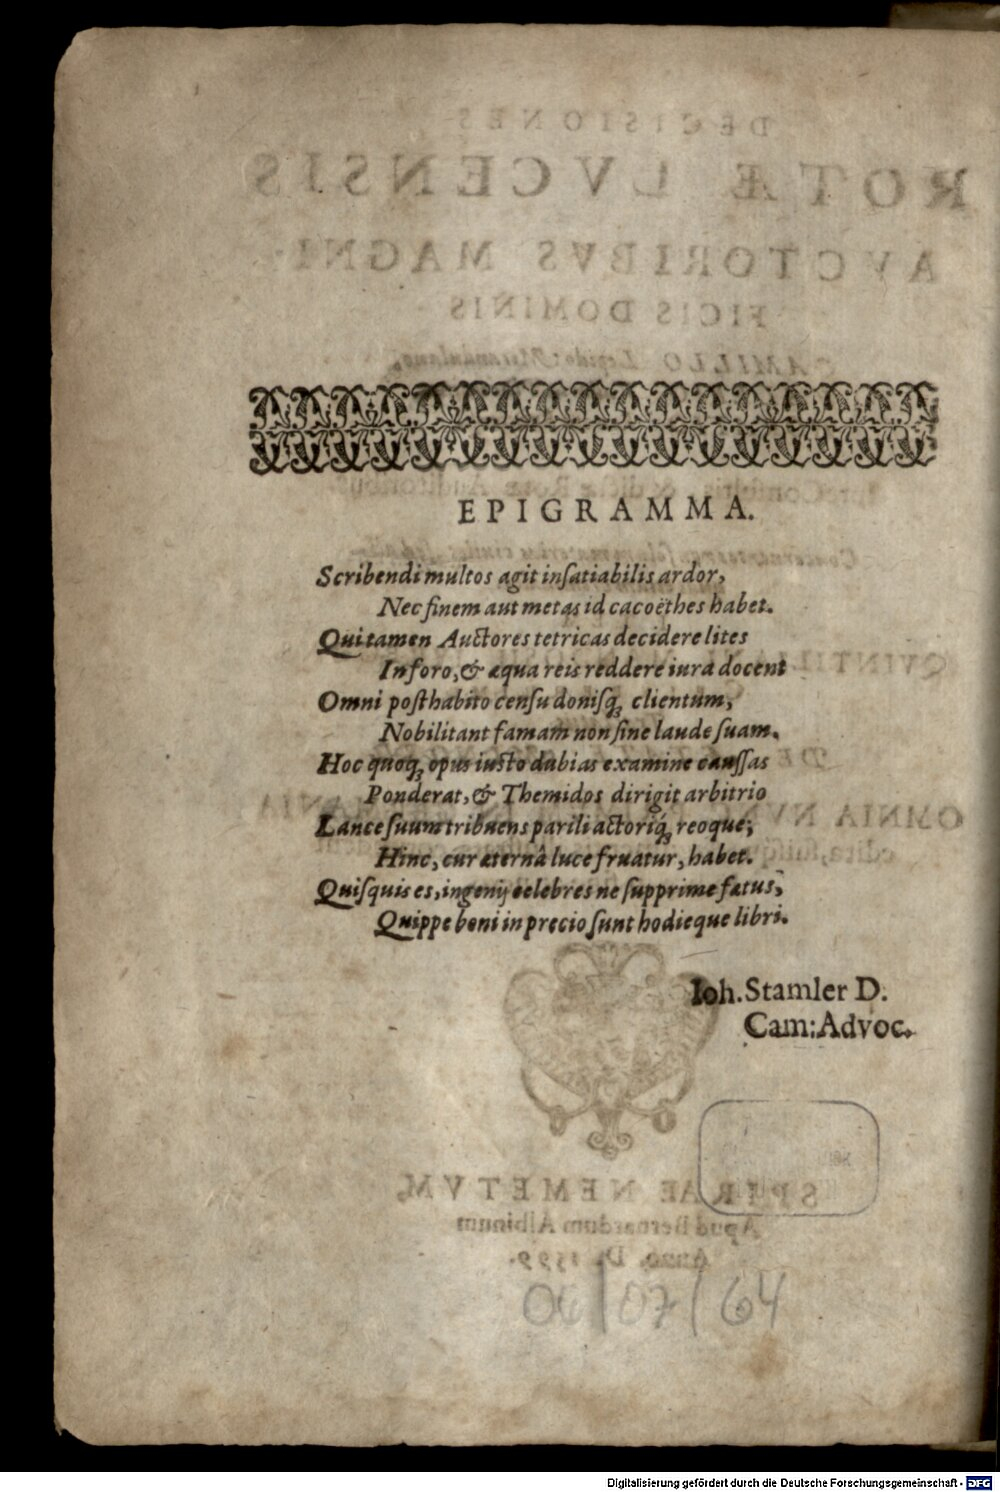 EPIGRAMMA.
Scribendi multos agit inſatiabilis ardor,
Nec finem aut metas id cacoëthes habet.
Qui tamen Auctores tetricas decidere lites
In foro, & æqua reis reddere iura docent
Omni poſthabito cenſu doniſq́ꝫ clientum,
Nobilitant famam non ſine laude ſuam.
Hoc quoqꝫ opus iusto dubias examine cauſſas
Ponderat, & Themidos dirigit arbitrio
Lance ſuum tribuens parili actoriq́ꝫ reoque;
Hinc, cur æternâ luce fruatur, habet.
Quiſquis es, ingenij celebres ne ſupprime fætus,
Quippe boni in precio ſunt hodieque libri.
Ioh. Stamler D.
Cam: Advoc.
SPIRAE NEMETVM,
Apud Bernardum Albinum
Anno, D. 1599.
06/07/64
Digitalisierung gefördert durch die Deutsche Forschungsgemeinschaft - DFG